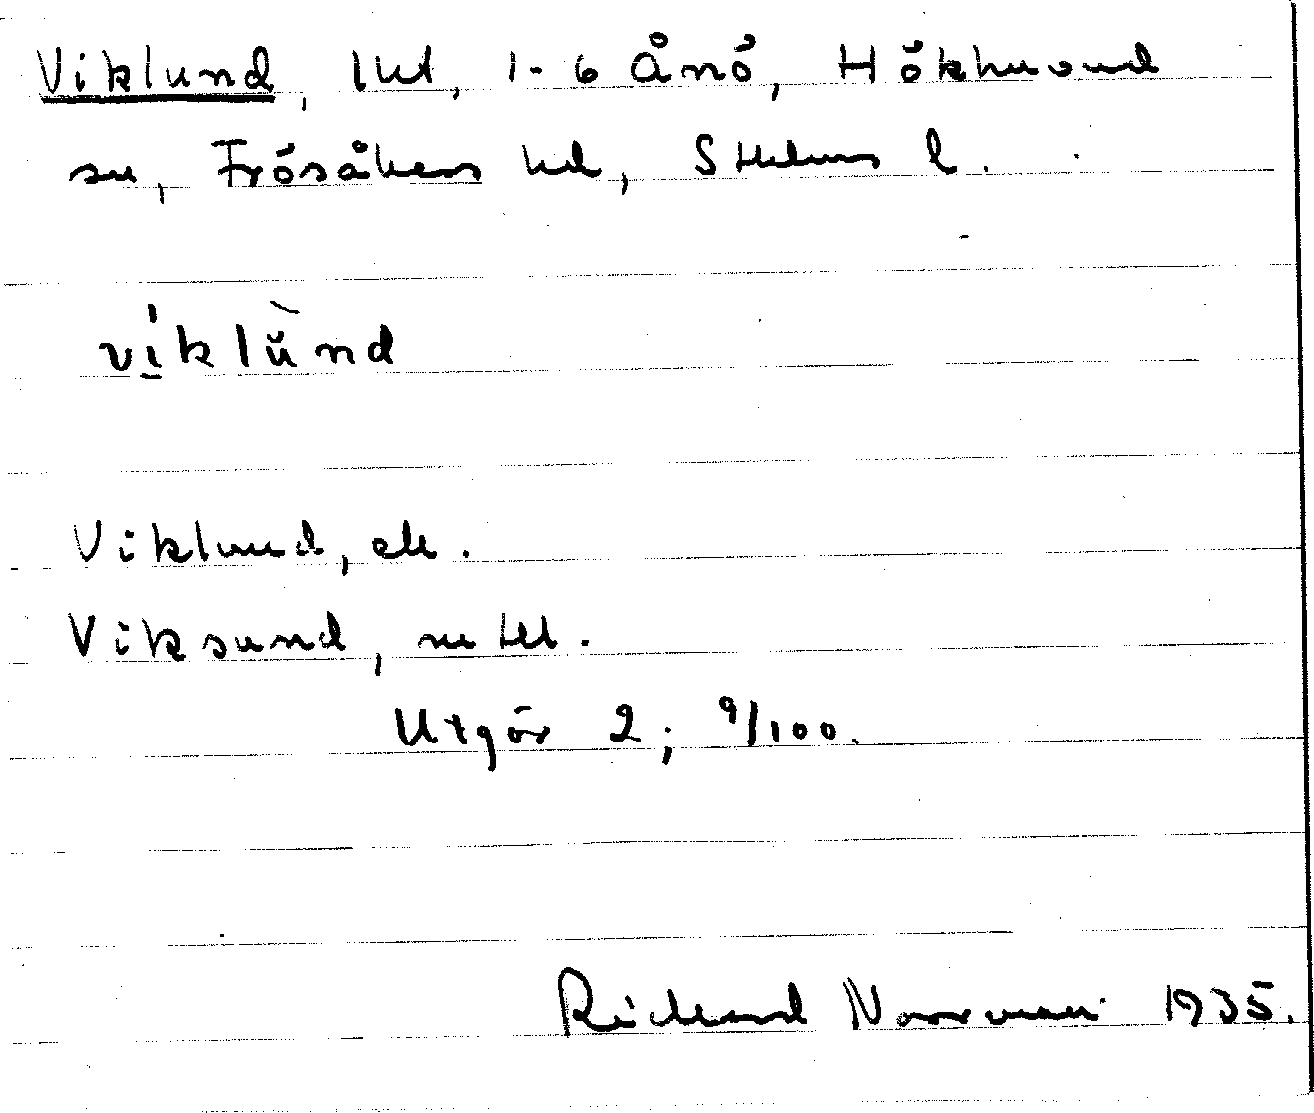 Viklund, lht, 1-6 Ånö, Hökhuvud
sn, Frösåkers hd, Sthlms l.
vi̱klŭnd
Viklund, ek.
Viksund, mtl.
Utgör 2; 9/100.
Richard Norrman 1935.